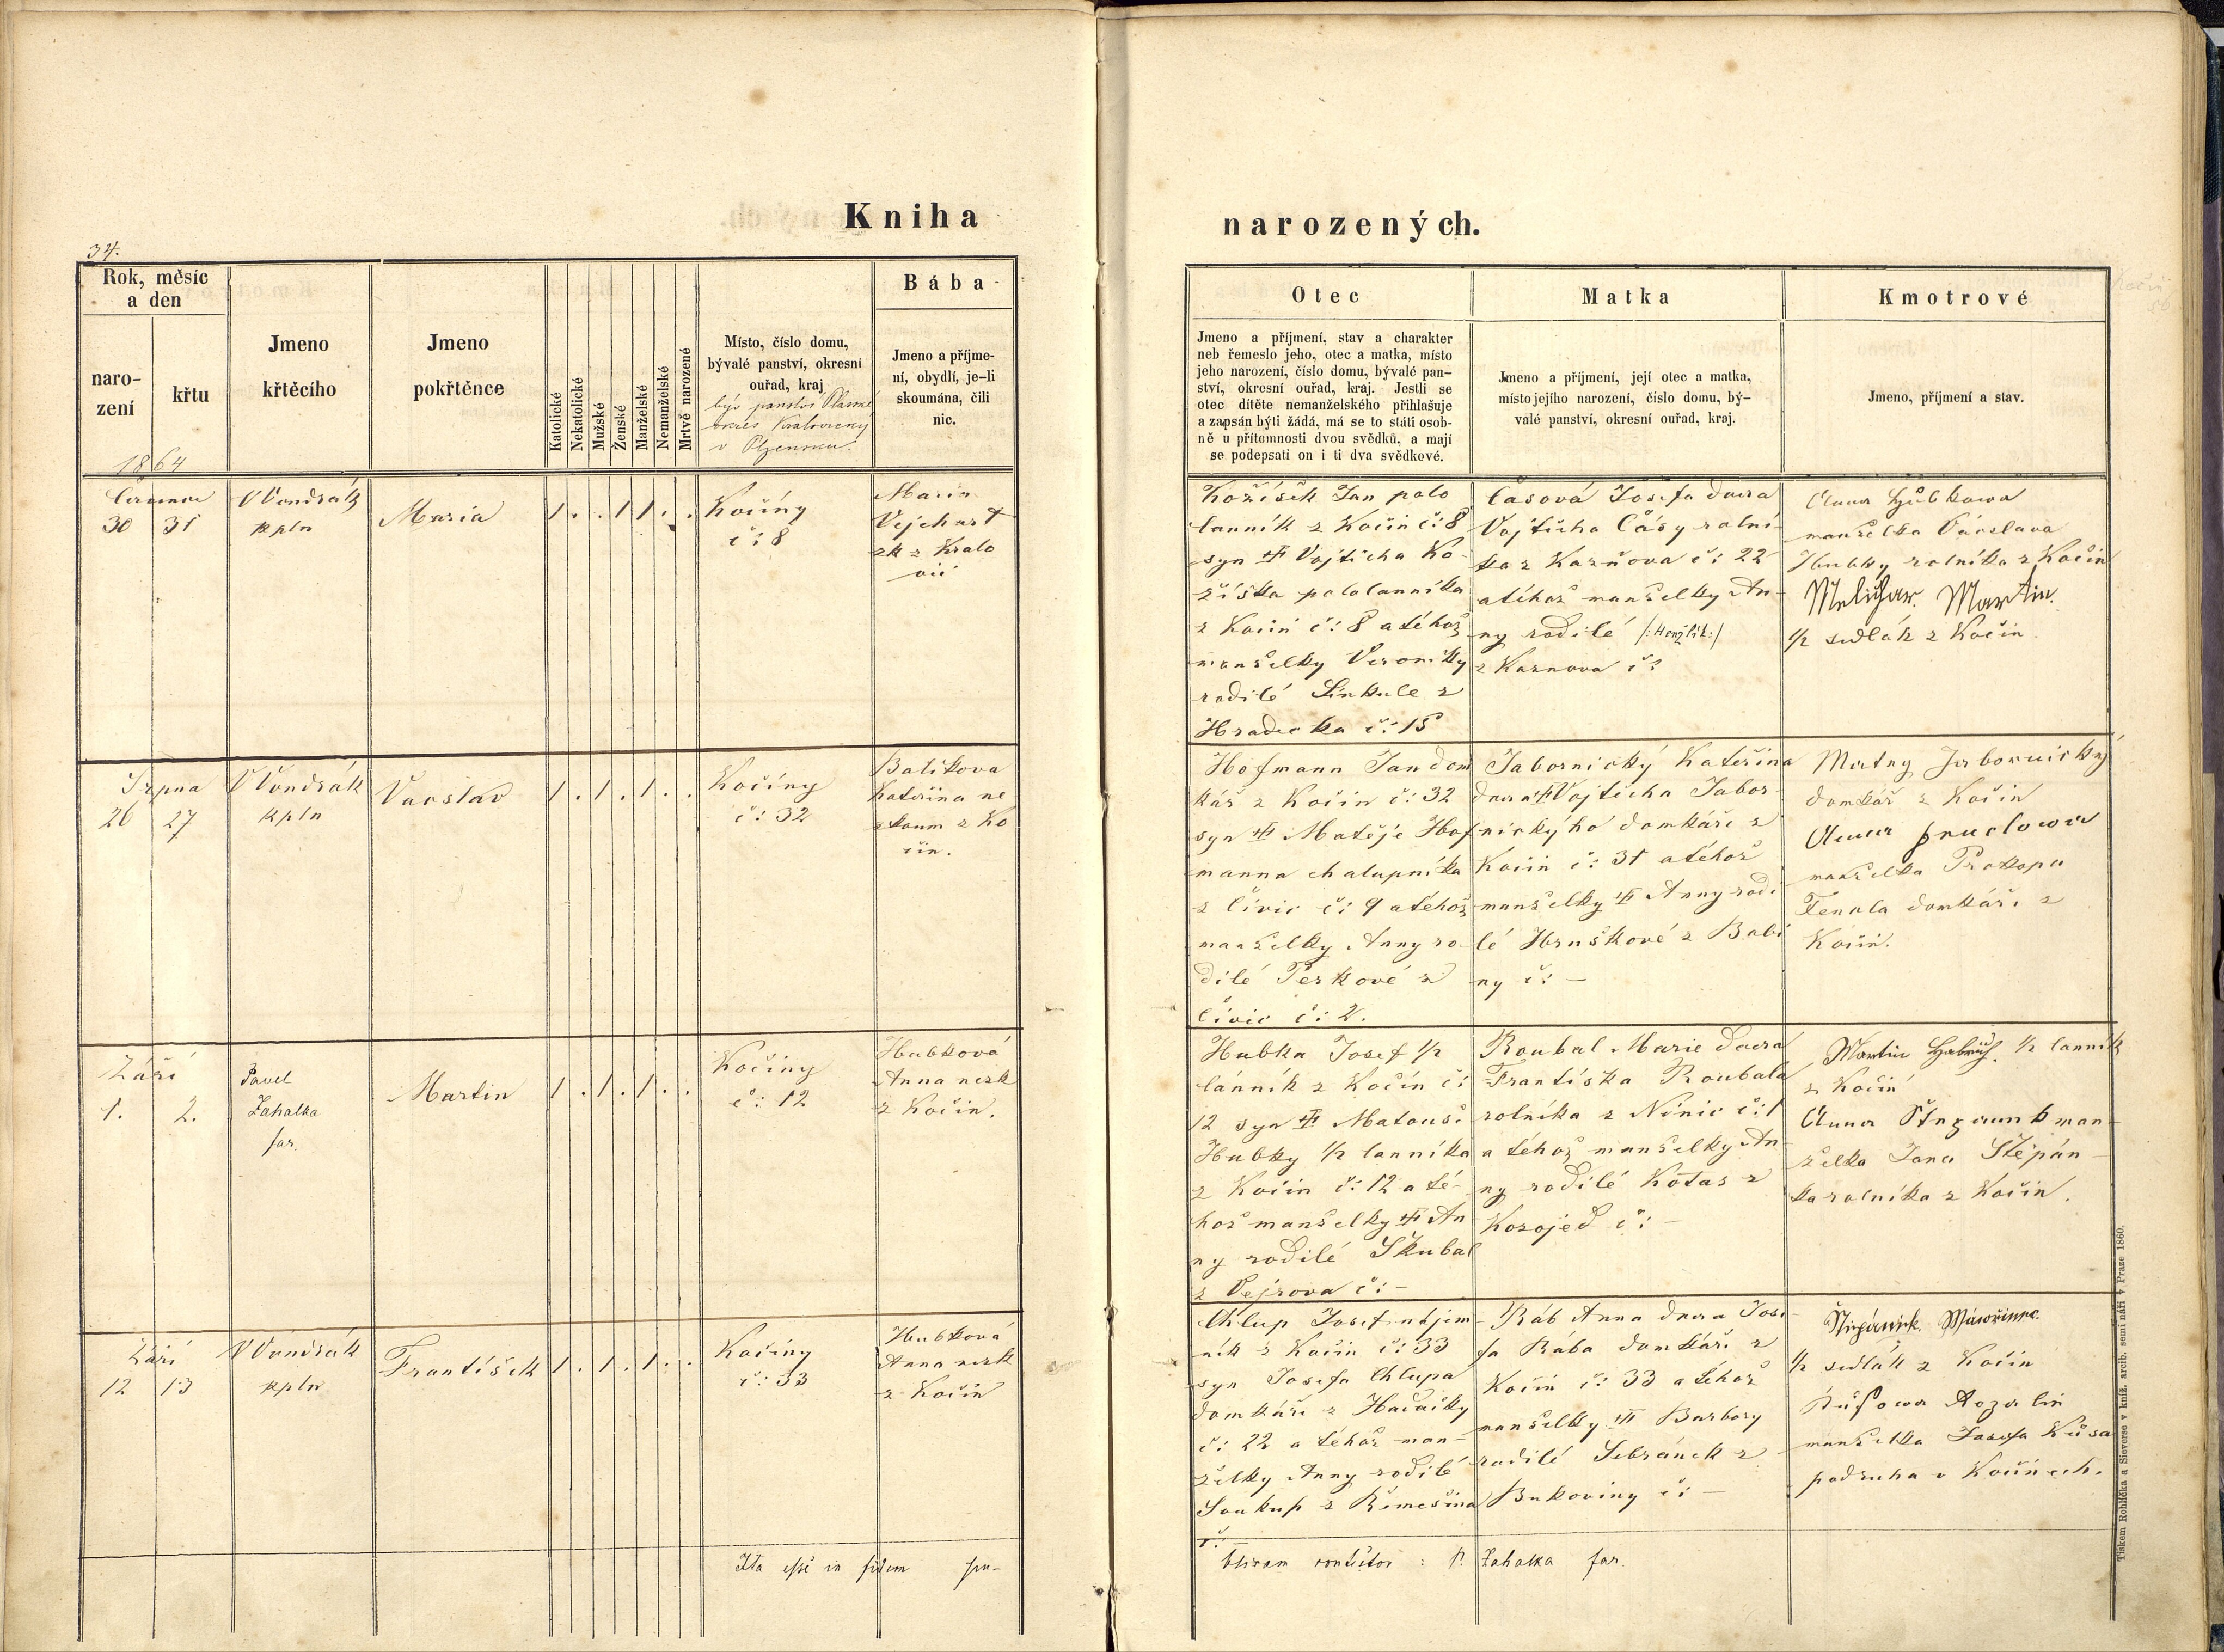 Kniha
narozených.
34.
Rok, měsíc
a den
naro-
zení
křtu
1864
Jmeno
křtěcího
Jmeno
pokřtěnce
Katolické
Nekatolické
Mužské
Ženské
Manželské
Nemanželské
Mrtvě narozené
Místo, číslo domu,
bývalé panství, okresní
ouřad, kraj
býv panství Plasme
okres Kralovický
v Plzensku.
Bába
Jmeno a příjme-
ní, obydlí, je-li
skoumána, čili
nic.
Otec
Jmeno a příjmení, stav a charakter
neb řemeslo jeho, otec a matka, místo
jeho narození, číslo domu, bývalé pan-
ství, okresní ouřad, kraj. Jestli se
otec dítěte nemanželského přihlašuje
a zapsán býti žádá, má se to státi osob-
ně u přítomnosti dvou svědků, a mají
se podepsati on i ti dva svědkové.
Matka
Jmeno a příjmení, její otec a matka,
místo jejího narození, číslo domu, bý-
valé panství, okresní ouřad, kraj.
Kmotrové
Jmeno, příjmení a stav.
30 31
V Vondrák
kpln
Maria
1 . . 1 1 . .
Kočiny
č: 8
Maria
Vejchart
zk z Kralo
vic
Kožíšek Jan polo
lanník z Kočin č: 8
syn † Vojticha Ko-
žíška pololanníka
z Kočin č: 8 a téhož
manželky Veroniky
rodilé Sinkule z
Hradecka č: 15
Časová Josefa dcera
Vojtícha Čásy rolní-
ka z Kazňova č: 22
a téhož manželky An-
ny rodilé /:Henžlík:/
z Kaznova č:
Anna Hubkowa
manželka Václava
Hubky rolníka z Kočin
Melichar. Martin.
1/2 sedlák z Kočin.
Srpna
26 27
V Vondrák
kpln
Vacslav
1 . 1 . 1 . .
Kočiny
č: 32
Batíkova
Kateřina ne
zkoum z Ko
čin.
Hofmann Jan dom
kář z Kočin č: 32
syn † Matěje Hof
manna chalupníka
z Čívic č: 9 a téhož
manželky Anny ro-
dilé Perkové z
Čívic č: 2.
Jabornický Kateřina
dcera † Vojtícha Jabor-
nickýho domkáře z
Kočin č: 31 a téhož
manželky † Anny rodi
lé Hruškové z Babi
ny č: –
Matny Jabornický
domkář z Kočin
Anna
manželka Prokopa
Fencla domkáře z
Kočin.
Září
1. 2.
Pavel
Zahalka
far.
Martin
1 . 1 . 1 . .
Kočiny
č: 12
Hubková
Anna nezk
z Kočin.
Hubka Josef 1/2
lánník z Kočin č:
12 syn † Matouše
Hubky 1/2 lanníka
z Kočin č: 12 a té-
hož manželky † An
ny rodilé Škubal
z Vejrova č: –
Roubal Marie dcera
Františka Roubala
rolníka z Ninic č: 1
a téhož manželky An-
ny rodilé Kotas z
Kozojed č: –
Martin 1/2 lanník
z Kočin
Anna man-
želka Jana Štěpán-
ka rolníka z Kočin.
Září
12 13
V Vondrák
kpln
František
1 . 1 . 1 . .
Kočiny
č: 33
Hubková
Anna nezk
z Kočin
Chlup Josef nájem-
ník z Kočin č: 33
syn Josefa Chlupa
domkáře z Hadačky
č: 22 a téhož man-
želky Anny rodilé
Soukup z Řemešína
č:
Ráb Anna dcera Jose-
fa Rába domkáře z
Kočin č: 33 a téhož
manželky † Barbory
rodilé Sebránek z
Bukoviny č: –
1/2 sedlák z Kočin
manželka Josefa Kůsa
podruha v Kočinech.
Ita esse in fidem
P. Zahalka far.
Tiskem Rohlíčka a Sieverse v kníž. arcib. semináři v Praze 1860.